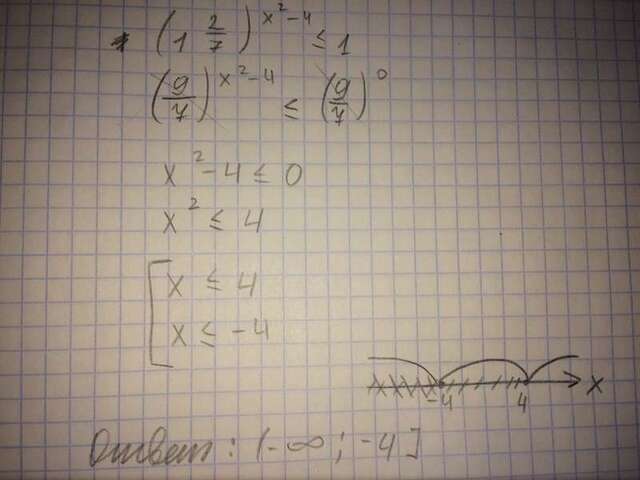 (1 2/7)^(x²-4) ≤ 1
(9/7)^(x²-4) ≤ (9/7)^0
x² - 4 ≤ 0
x² ≤ 4
[ x ≤ 4
x ≤ -4
-4 4 x
Ответ: (-∞; -4]